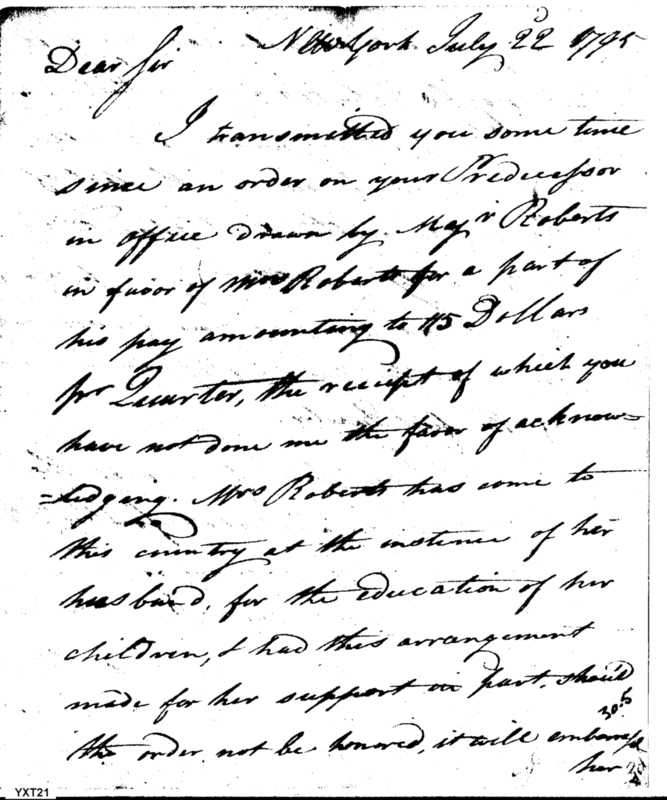 New York July 22 1795
Dear Sir
I transmitted you some time
since an order on your Predecessor
in office drawn by Majr Roberts
in favor of Mrs Roberts for a part of
his pay amounting to 115 Dollars
pr Quarter, the receipt of which you
have not done me the favor of acknow=
=ledging. Mrs Roberts has come to
this country at the instance of her
husband, for the education of her
children, & had this arrangement
made for her support in part. should
the order not be honored, it will embarrass
her
YXT21